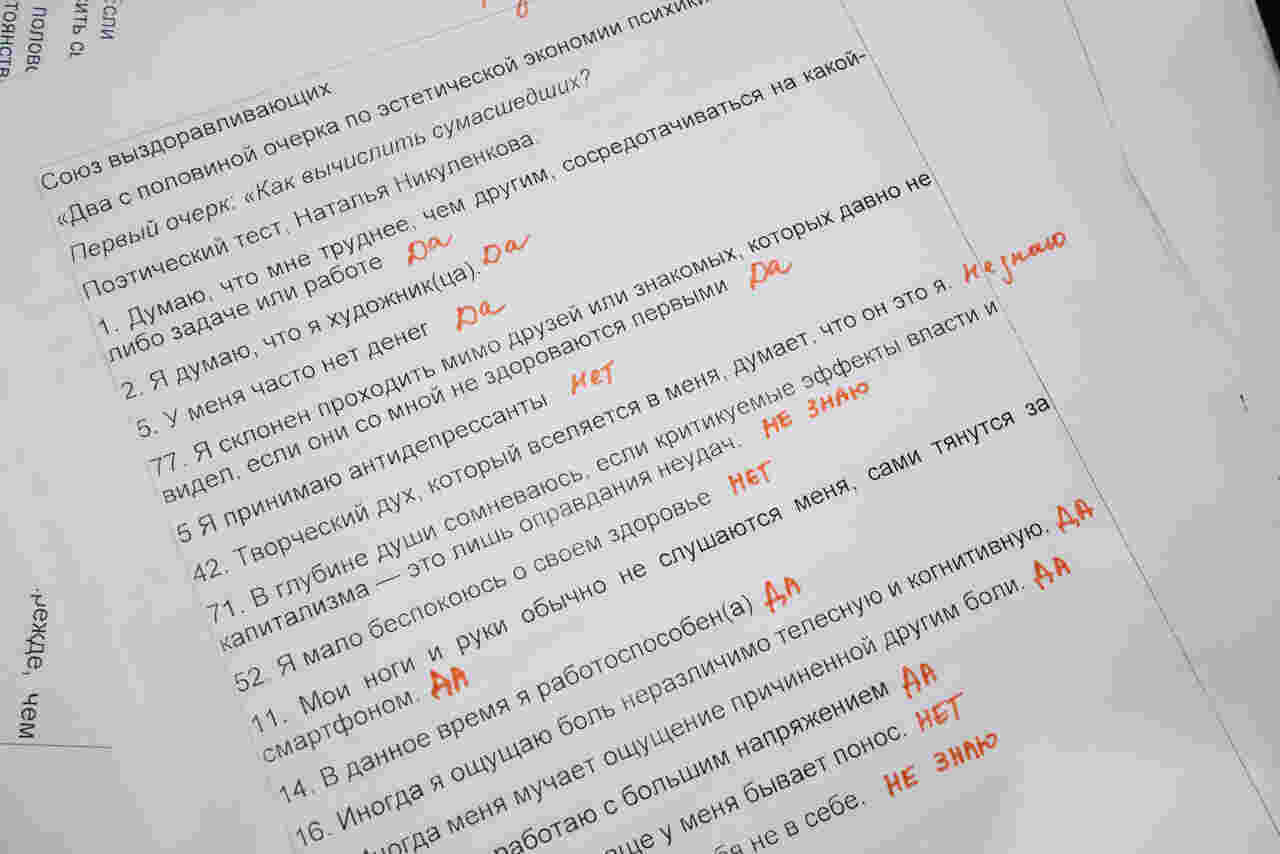 Союз выздоравливающих
«Два с половиной очерка по эстетической экономии психики
Первый очерк: «Как вычислить сумасшедших?
Поэтический тест, Наталья Никуленкова.
1. Думаю, что мне труднее, чем другим, сосредотачиваться на какой-
либо задаче или работе Да
2. Я думаю, что я художник(ца). Да
5. У меня часто нет денег Да
77. Я склонен проходить мимо друзей или знакомых, которых давно не
видел, если они со мной не здороваются первыми Да
5 Я принимаю антидепрессанты Нет
42. Творческий дух, который вселяется в меня, думает, что он это я. Не знаю
71. В глубине души сомневаюсь, если критикуемые эффекты власти и
капитализма — это лишь оправдания неудач. НЕ ЗНАЮ
52. Я мало беспокоюсь о своем здоровье НЕТ
11. Мои ноги и руки обычно не слушаются меня, сами тянутся за
смартфоном. ДА
14. В данное время я работоспособен(а) ДА
16. Иногда я ощущаю боль неразличимо телесную и когнитивную. ДА
меня мучает ощущение причиненной другим боли. ДА
работаю с большим напряжением ДА
у меня бывает понос. НЕТ
не в себе. НЕ ЗНАЮ
чем